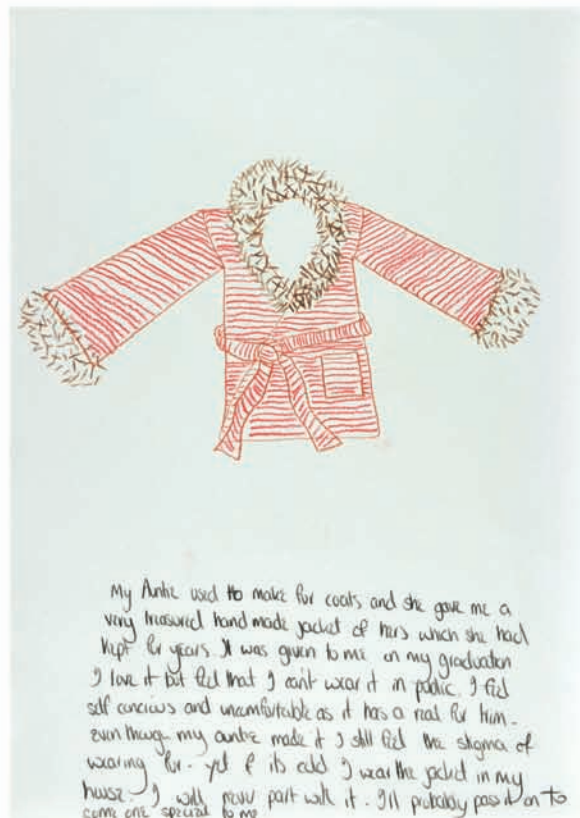 My Auntie used to make fur coats and she gave me a
very treasured hand made jacket of hers which she had
kept for years. It was given to me on my graduation
I love it but feel that I can't wear it in public. I feel
self concious and uncomfortable as it has a real fur trim.
even though my auntie made it I still feel the stigma of
wearing fur. yet if its cold I wear the jacket in my
house. I will never part with it. I'll probably pass it on to
some one special to me